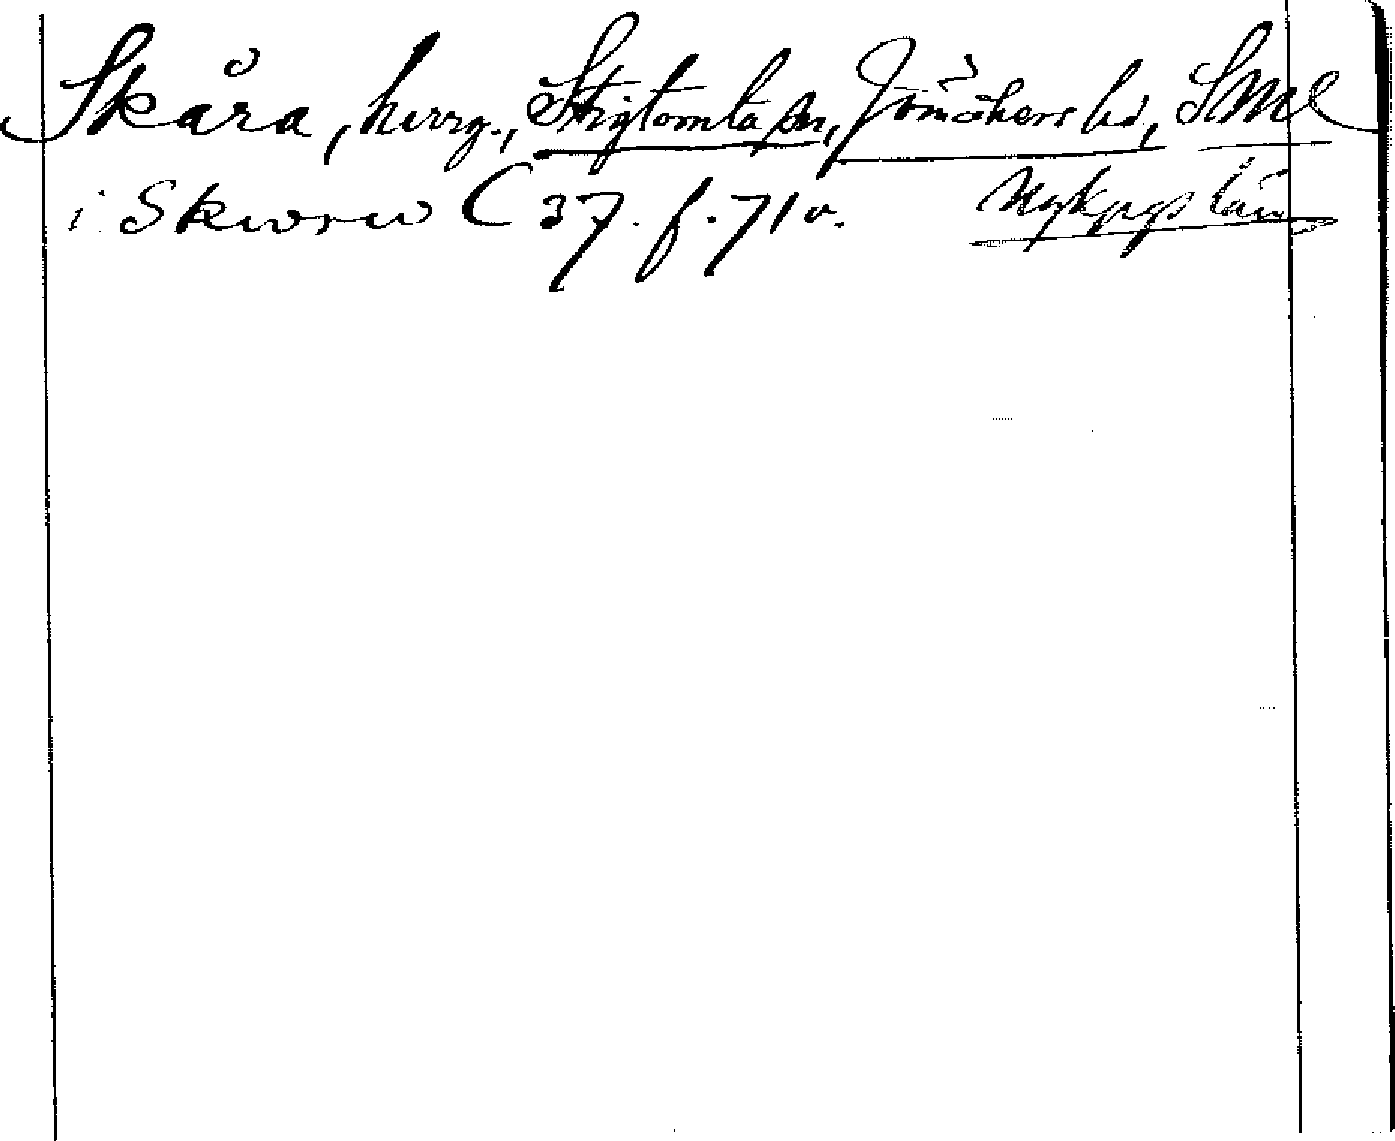 Skåra, herrg., Stigtomta sn, Jönåkers hd, SML
i Skworw C 37. f. 71 v. Nykpgs län